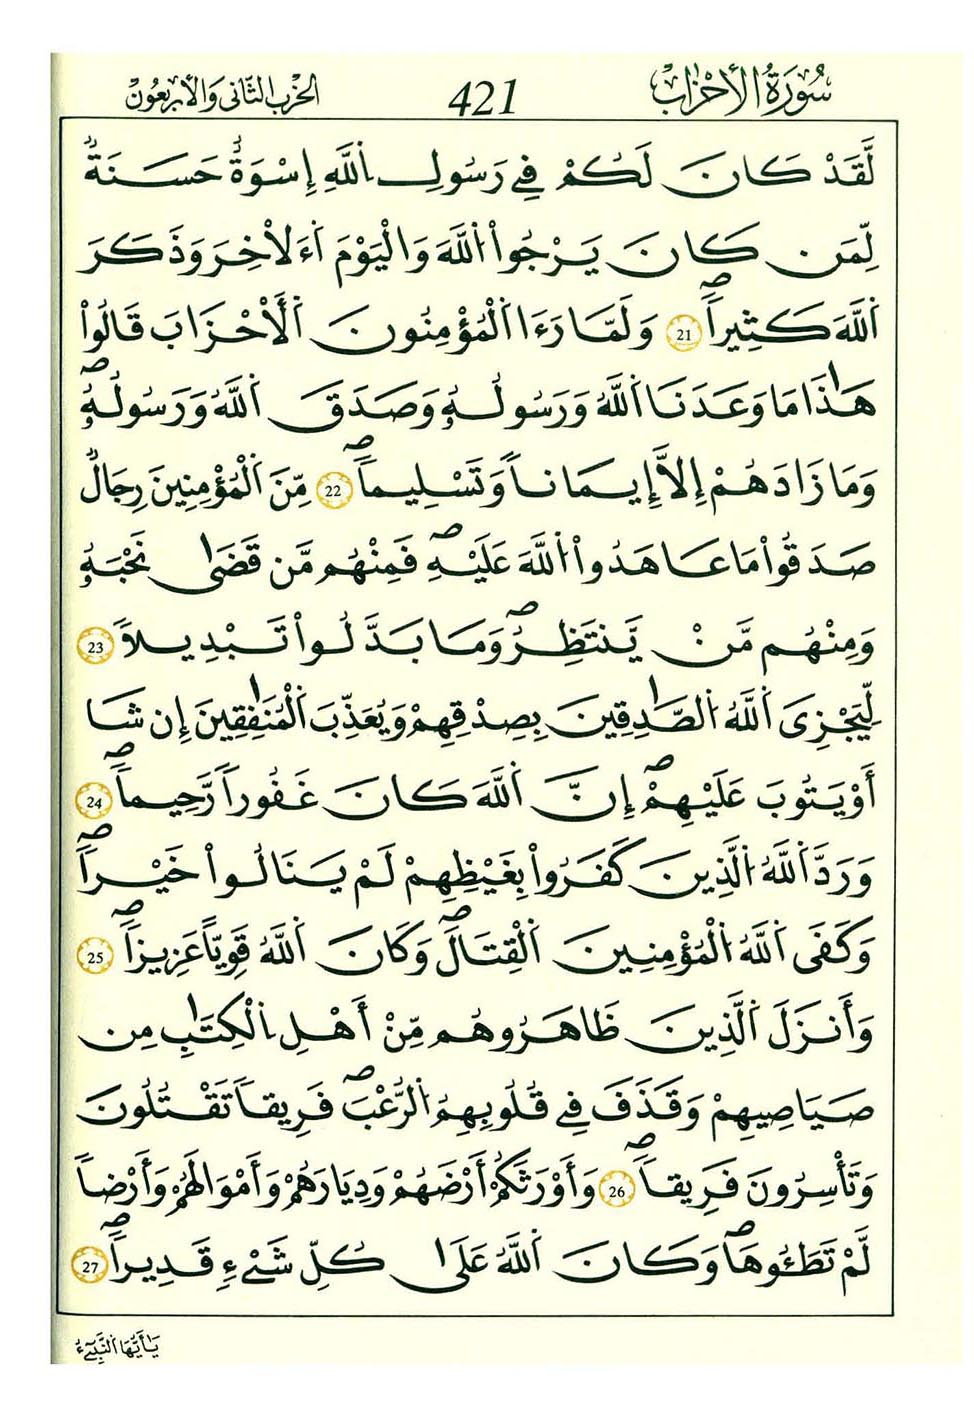 سُورَةُ الْأَحْزَابِ 421 الحزب الثاني والأربعون
لَّقَدْ كَانَ لَكُمْ فِے رَسُولِ اِ۬للَّهِ إِسْوَةٌ حَسَنَةٌ
لِّمَن كَانَ يَرْجُواْ اُ۬للَّهَ وَالْيَوْمَ اَ۬ءَلْأخِرَ وَذَكَرَ
اَ۬للَّهَ كَثِيراٗۖ 21 وَلَمَّا رَءَا اَ۬لْمُؤْمِنُونَ اَ۬لْأَحْزَابَ قَالُواْ
هَٰذَا مَا وَعَدَنَا اَ۬للَّهُ وَرَسُولُهُۥ وَصَدَقَ اَ۬للَّهُ وَرَسُولُهُۥۖ
وَمَا زَادَهُمْ إِلَّا إِيمَاناٗ وَتَسْلِيماٗۖ 22 مِّنَ اَ۬لْمُؤْمِنِينَ رِجَالٌ
صَدَقُواْ مَا عَاهَدُواْ اُ۬للَّهَ عَلَيْهِۖ فَمِنْهُم مَّن قَضَىٰ نَحْبَهُۥ
وَمِنْهُم مَّنْ يَّنتَظِرُۖ وَمَا بَدَّلُواْ تَبْدِيلاٗ 23
لِّيَجْزِىَ اَ۬للَّهُ اُ۬لصَّٰدِقِينَ بِصِدْقِهِمْ وَيُعَذِّبَ اَ۬لْمُنَٰفِقِينَ إِن شَا
أَوْ يَتُوبَ عَلَيْهِمْۖ إِنَّ اَ۬للَّهَ كَانَ غَفُوراٗ رَّحِيماٗۖ 24
وَرَدَّ اَ۬للَّهُ اُ۬لَّذِينَ كَفَرُواْ بِغَيْظِهِمْ لَمْ يَنَالُواْ خَيْراٗۖ
وَكَفَى اَ۬للَّهُ اُ۬لْمُؤْمِنِينَ اَ۬لْقِتَالَۖ وَكَانَ اَ۬للَّهُ قَوِيّاً عَزِيزاٗۖ 25
وَأَنزَلَ اَ۬لَّذِينَ ظَاهَرُوهُم مِّنْ أَهْلِ اِ۬لْكِتَٰبِ مِن
صَيَاصِيهِمْ وَقَذَفَ فِے قُلُوبِهِمُ اُ۬لرُّعْبَۖ فَرِيقاٗ تَقْتُلُونَ
وَتَأْسِرُونَ فَرِيقاٗۖ 26 وَأَوْرَثَكُمْ أَرْضَهُمْ وَدِيَارَهُمْ وَأَمْوَالَهُمْ وَأَرْضاٗ
لَّمْ تَطَـُٔوهَاۖ وَكَانَ اَ۬للَّهُ عَلَىٰ كُلِّ شَےْءٖ قَدِيراٗۖ 27
يَا أَيُّهَا اَ۬لنَّبِيٓءُ